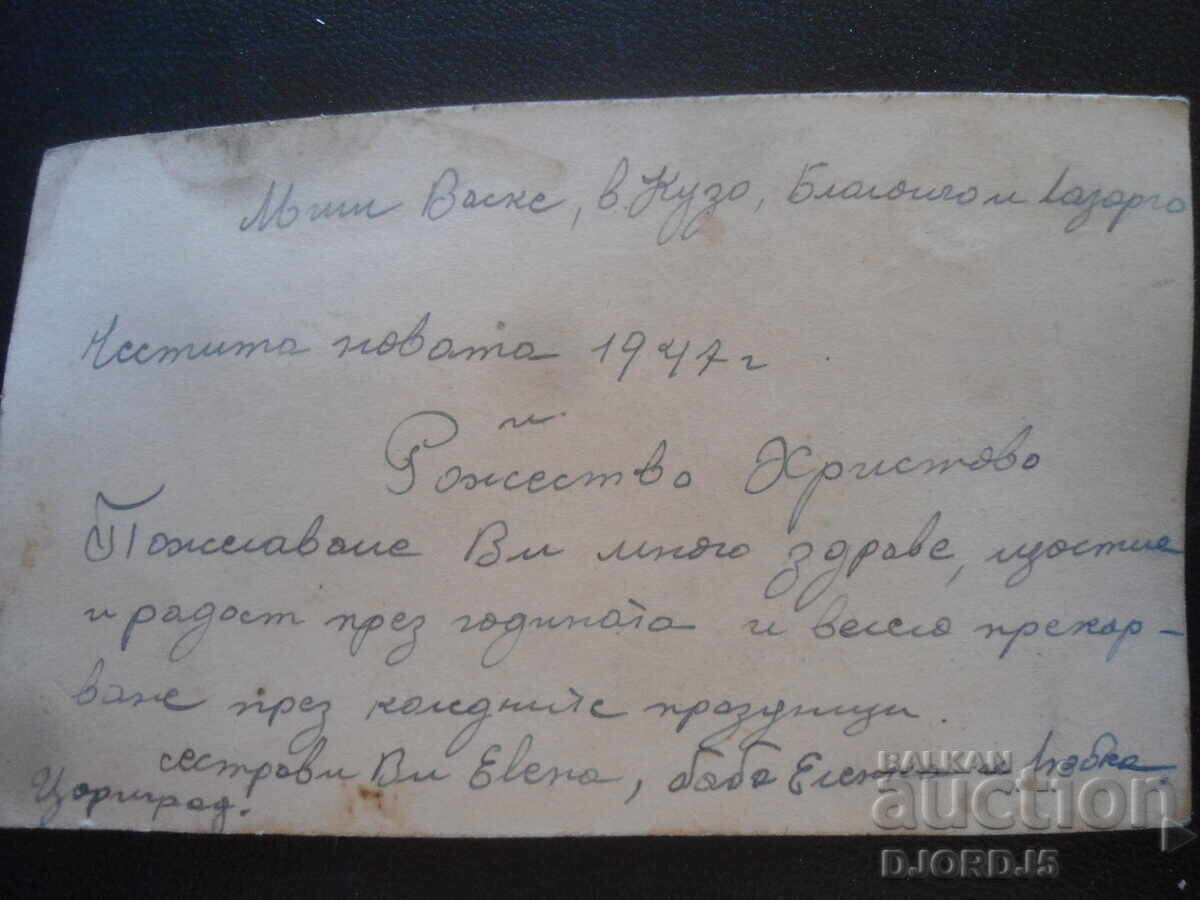 Мили Васке, в. Кузо, Благоица и Лазарчо
Честита новата 1947 г.
и
Рожество Христово
Пожелаваме Ви много здраве, щастие
и радост през годината и весело прекар-
ване през коледните празници.
сестрови Ви Евена, баба Елен и Любка.
Цариград.
BALKAN
auction
DJORDJ5